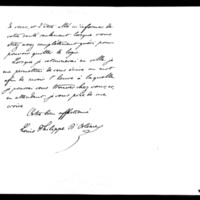 Je veux, et d'être informé de
votre santé seulement lorsque vous
serez assez complètement guéri pour
pouvoir quitter le logis.
Lorsque je retournerai en ville, je
me permettrai de vous écrire un mot
afin de savoir l'heure à laquelle
je pourrai vous trouver chez vous, et,
en attendant, je vous prie de me
croire
Votre bien affectionné
Louis Philippe d'Orléans